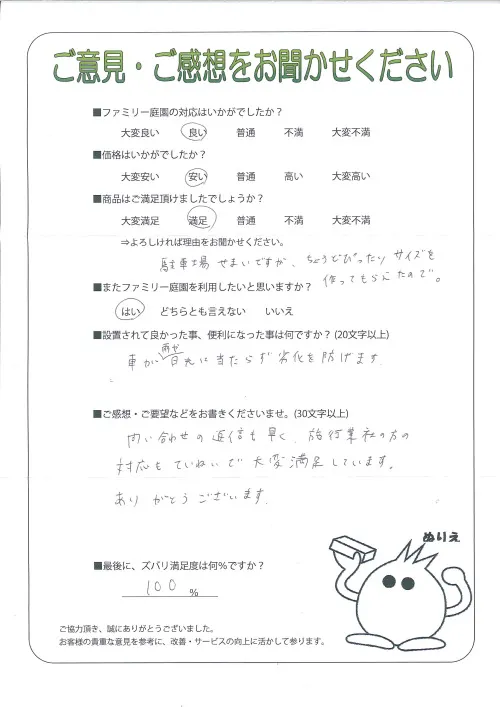 ご意見・ご感想をお聞かせください
■ファミリー庭園の対応はいかがでしたか？
大変良い 良い 普通 不満 大変不満
■価格はいかがでしたか？
大変安い 安い 普通 高い 大変高い
■商品はご満足頂けましたでしょうか？
大変満足 満足 普通 不満 大変不満
⇒よろしければ理由をお聞かせください。
駐車場せまいですが、ちょうどぴったりサイズを
作ってもらえたので。
■またファミリー庭園を利用したいと思いますか？
はい どちらとも言えない いいえ
■設置されて良かった事、便利になった事は何ですか？(20文字以上)
雨や
車が日光に当たらず劣化を防げます。
■ご感想・ご要望などをお書きくださいませ。(30文字以上)
問い合わせの返信も早く、施行業社の方の
対応もていねいで大変満足しています。
ありがとうございます。
ぬりえ
■最後に、ズバリ満足度は何％ですか？
100 %
ご協力頂き、誠にありがとうございました。
お客様の貴重な意見を参考に、改善・サービスの向上に活かして参ります。